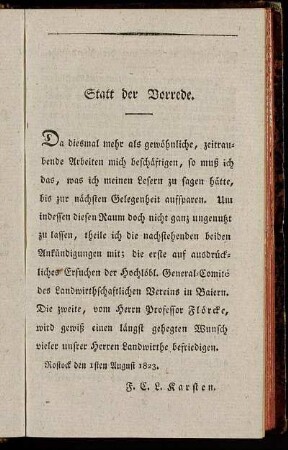 Statt der Vorrede.
Da diesmal mehr als gewöhnliche, zeitrau-
bende Arbeiten mich beschäftigen, so muß ich
das, was ich meinen Lesern zu sagen hätte,
bis zur nächsten Gelegenheit aufsparen. Um
indessen diesen Raum doch nicht ganz ungenutzt
zu lassen, theile ich die nachstehenden beiden
Ankündigungen mit; die erste auf ausdrück-
liches Ersuchen der Hochlöbl. General-Comité
des Landwirthschaftlichen Vereins in Baiern.
Die zweite, vom Herrn Professor Flörcke,
wird gewiß einen längst gehegten Wunsch
vieler unsrer Herren Landwirthe befriedigen.
Rostock den 1sten August 1823.
F. C. L. Karsten.